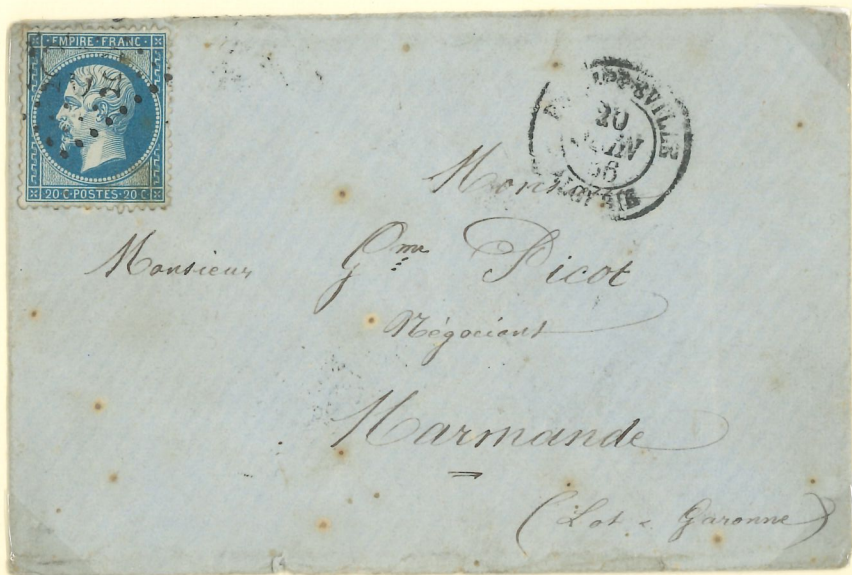 EMPIRE·FRANC·
20 C·POSTES·20 C
20
JUIN
66
ALGERIE
Monsieur
Monsieur
Gme Picot
Négociant
Marmande
(Lot & Garonne)